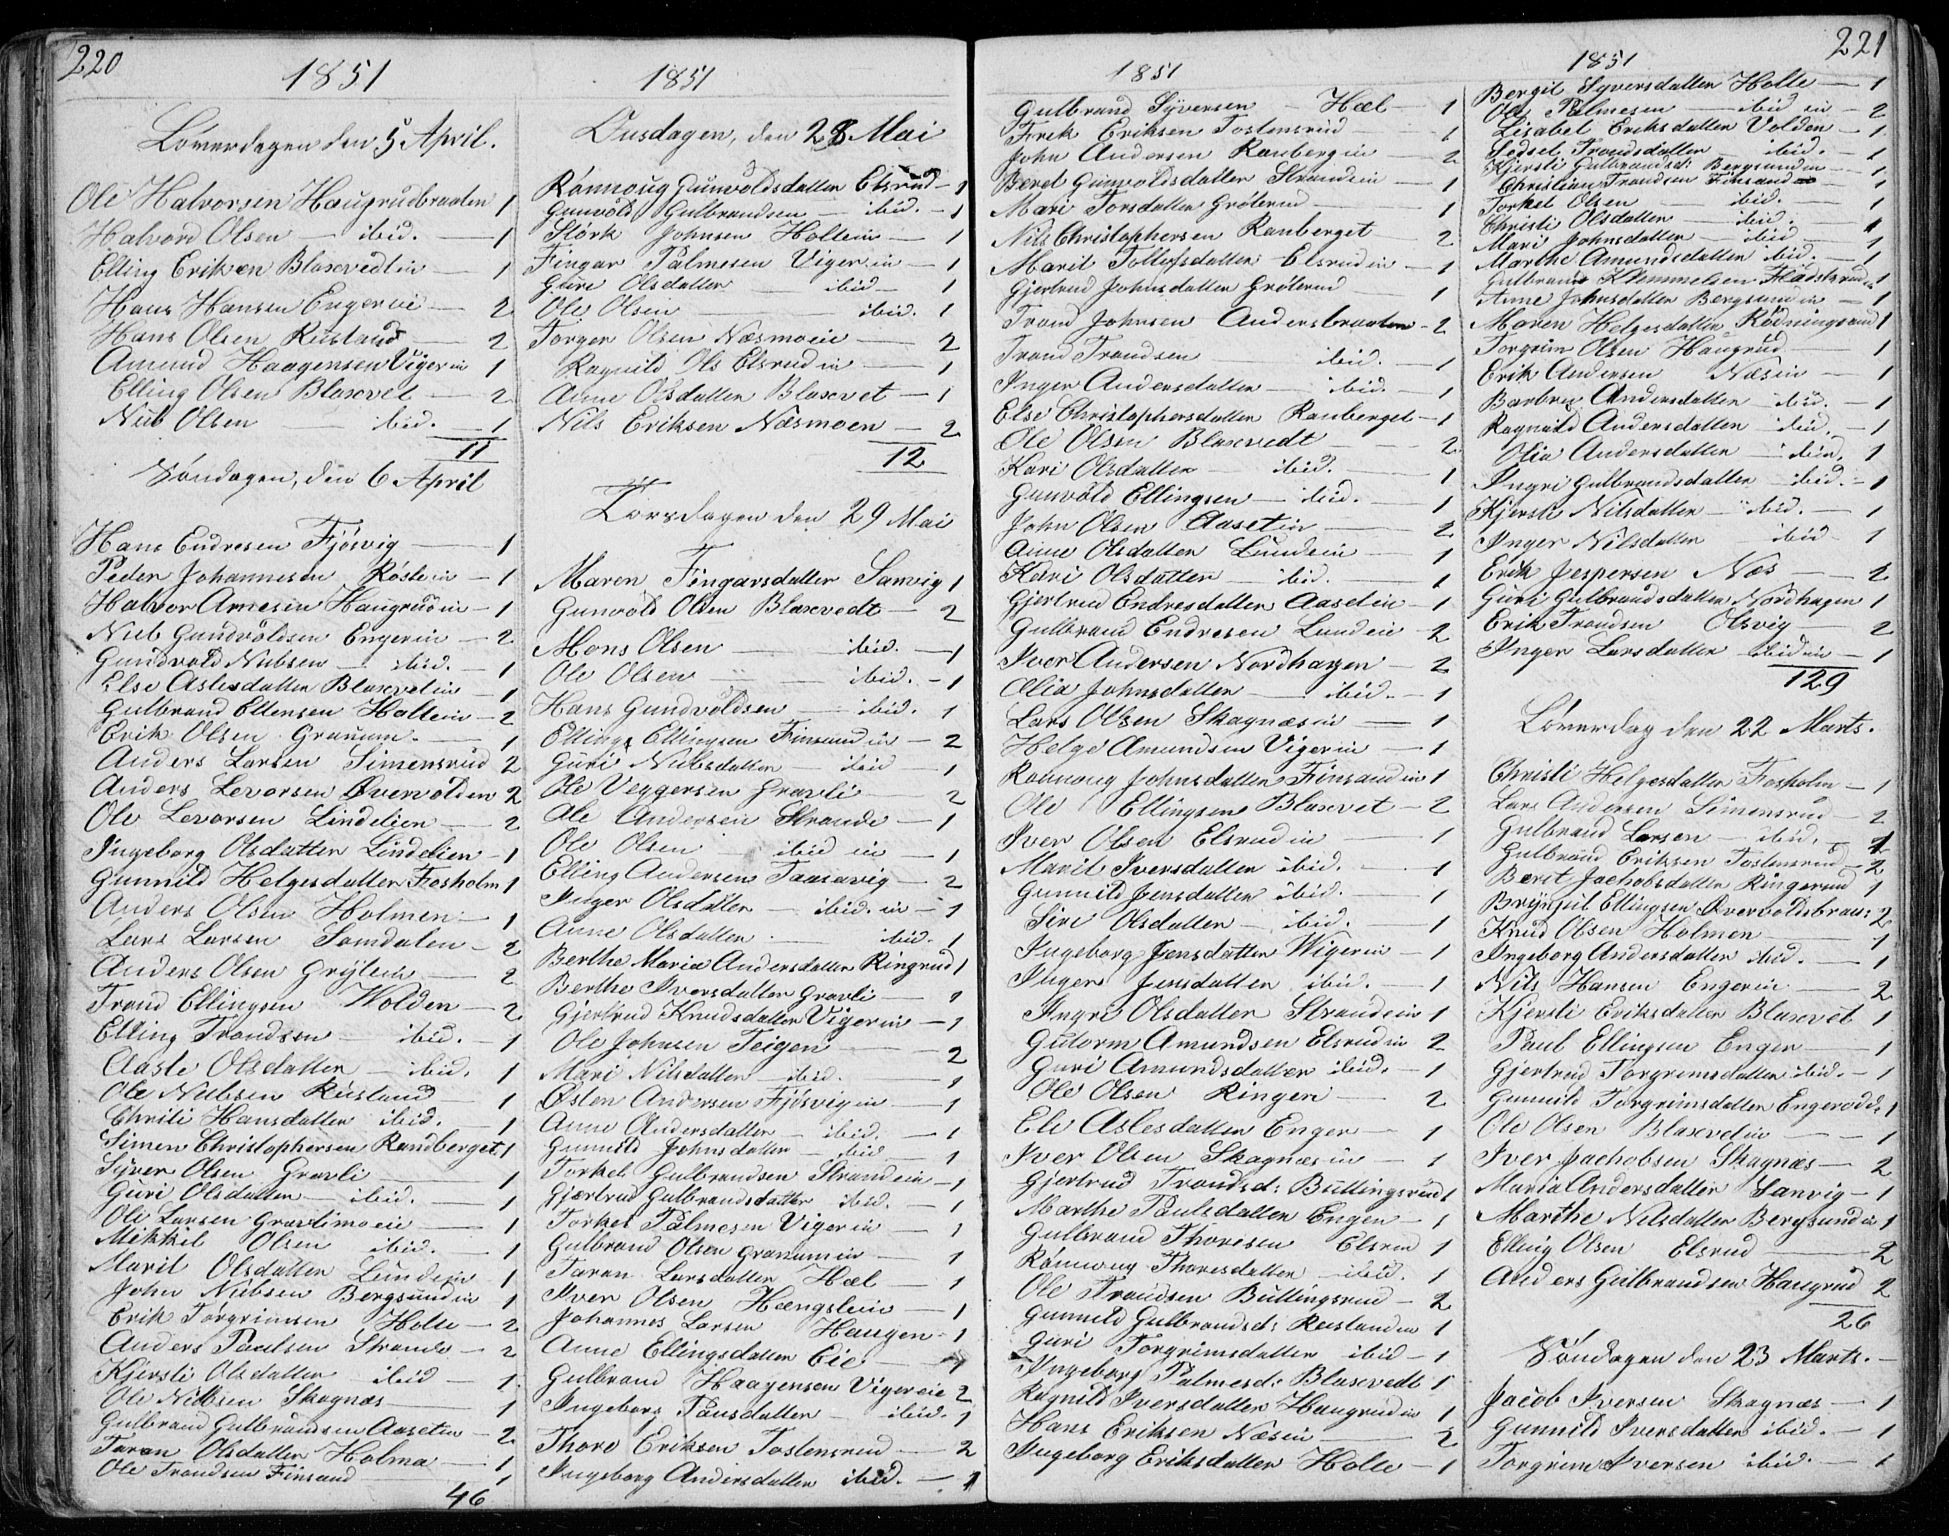 220
1851
Löverdagen den 5 April.
Ole Halvorsen Haugrudbraaten 1
Halvord Olsen — ibid. — 1
Elling Eriksen Blaxevedtin — 1
Hans Hansen Engereie — 2
Hans Olsen Rustand 2
Amund Haagensen Vigerin 1
Elling Olsen Blaxevet — 2
Niels Olsen — ibid. — 1
11
Söndagen, den 6 April
Hans Endresen Fjösvig — 1
Peder Johannesen Rostein — 1
Halvor Arnesen Haugrudin — 1
Niels Gundvoldsen Engerin — 2
Gundvold Nielsen — ibid. — 1
Else Aslesdatter Blaxevetin — 1
Gulbrand Ellensen Hollein — 2
Erik Olsen Granum — 1
Anders Larsen Simensrud 2
Anders Levorsen Øvervolden 2
Ole Levorsen Lindelien — 2
Ingeborg Olsdatter Lindelien — 1
Gunnild Helgesdatter Fosholm 1
Anders Olsen Holmen — 1
Lars Larsen Somdalen — 2
Anders Olsen Grytein — 2
Trond Ellingsen Wolden — 2
Elling Trondsen — ibid. — 1
Aaste Olsdatter — ibid. 1
Ole Nielsen Rustand — 1
Christi Hansdatter ibid. 1
Simen Christophersen Randberget 1
Syver Olsen Gravli — 1
Guri Olsdatter — ibid. — 1
Ole Larsen Gravlimoeie — 1
Mikkil Olsen ibid. — 1
Marit Olsdatter Lundein 1
John Nielsen Bergsundin 1
Erik Torgrimsen Holte — 2
Anders Paulsen Strande — 2
Kjersti Olsdatter ibid — 1
Ole Nilsen Skagnæs — 1
Gulbrand Gulbrandsen Aasetin — 2
Taran Olsdatter Holma — 1
Ole Trondsen Finsand 1
46
1851
Onsdagen, den 28 Mai
Rønnoug Gunvoldsdatter Elsrud — 1
Gunvold Gulbrandsen — ibid. — 1
Störk Johnsen Hollein — 1
Fingar Palmesen Vigerin — 1
Guri Olsdatter — ibid — 1
Ole Olsen — ibid. 1
Torger Olsen Næsmoeie — 2
Ragnild Ols Elsrudin — 1
Anne Olsdatter Blaxevet — 1
Nils Eriksen Næsmoen — 2
12
Torsdagen den 29 Mai
Maren Fingarsdatter Sanvig 1
Gunvold Olsen Blaxevedt — 2
Mons Olsen — ibid. — 1
Ole Olsen — ibid. — 1
Hans Gundvoldsen — ibid. 1
Elling Ellingsen Finsandin — 2
Guri Nielsdatter — ibid 1
Ole Veggersen Gravli — 2
Ole Andersen Strande — 1
Ole Olsen — ibid in — 1
Elling Andersen Taasavig — 2
Inger Olsdatter — ibid. in — 1
Anne Olsdatter — ibid. 1
Berthe Maria Andersdatter Ringrud 1
Berthe Iversdatter Gravli — 1
Gjertrud Knudsdatter Vigerin — 1
Ole Johnsen Teigen — 2
Mari Nilsdatter — ibid. — 1
Østen Andersen Fjösvigin — 1
Anne Andersdatter — ibid. — 1
Gunnild Johnsdatter — ibid. — 1
Torkel Gulbrandsen Strandein — 1
Gjertrud Gulbrandsdatter ibid. — 1
Torkel Palmesen Vigerin — 1
Gulbrand Olsen Granumin — 1
Taran Larsdatter Hæl — 1
Iver Olsen Hængslein — 1
Johannes Larsen Haugen — 1
Anne Ellingsdatter Eie — 1
Gulbrand Haagensen Vigereie 2
Ingeborg Paulsdatter ibid. 1
Thore Eriksen Tostensrud — 2
Ingeborg Andersdatter ibid. — 1
221
1851
Gulbrand Syversen — Hæl — 1
Erik Eriksen Tostensrud — 1
John Andersen Ranbergin — 2
Beret Gunvoldsdatter Strandein — 1
Mari Torsdatter Gröterud — 1
Nils Christophersen Ranberget — 2
Marit Tollefsdatter Elsrudin — 1
Gjertrud Johnsdatter Gröterud 1
Trond Johnsen Andersbraaten — 2
Trond Trondsen — ibid. — 1
Inger Andersdatter — ibid. — 1
Else Christophersdatter Ranberget — 1
Ole Olsen Blaxevedt — 2
Kari Olsdatter — ibid. — 1
Gunvold Ellingsen — ibid. — 1
John Olsen Aasetin — 2
Anne Olsdatter Lundein — 1
Kari Olsdatter — ibid. 1
Gjertrud Endresdatter Aasetin — 1
Gulbrand Endresen Lundein — 2
Iver Andersen Nordhagen — 2
Olia Johnsdatter — ibid. — 1
Lars Olsen Skagnæsin — 1
Helge Amundsen Vigerin — 1
Rønnoug Johnsdatter Finsandin 1
Ole Ellingsen Blaxevet — 2
Iver Olsen Elsrudin — 1
Marit Iversdatter ibid. — 1
Gunnild Jensdatter ibid. — 1
Siri Olsdatter — ibid. — 1
Ingeborg Jensdatter Wigerin — 1
Inger Jensdatter ibid. — 1
Ingri Olsdatter Strandein 1
Gutorm Amundsen Elsrudin 2
Guri Amundsdatter ibid. — 1
Ole Olsen Ringeri — 2
Eli Aslesdatter Enger — 1
Iver Olsen Skagnæsin — 1
Gjertrud Trondsd: Bullingsrud 1
Marthe Paulsdatter Engen — 1
Gulbrand Thoresen Elsrud 1
Rønnoug Thoresdatter — ibid. 1
Ole Trondsen Bullingsrud — 2
Gunnild Gulbrandsd: Rustandin 1
Guri Torgrimsdatter ibid — 1
Ingeborg Palmesd: Blaxevedt 1
Ragnild Iversdatter Haugrudin 1
Hans Eriksen Næsin — 2
Ingeborg Eriksdatter Holte — 1
1851
Bergit Syversdatter Holte — 1
Ole Palmesen — ibid in — 2
Lisabet Eriksdatter Volden — 1
Sedsel Trondsdatter — ibid. — 1
Kjersti Gulbrandsd: Bergsundin — 1
Christian Trondsen Finsand 1
Torkel Olsen — ibid. — 1
Christi Olsdatter ibid. 1
Mari Johnsdatter — ibid 1
Marthe Amundsdatter ibid. — 1
Gulbrand Klemmetsen Fladsterudin 1
Anne Johnsdatter Bergsundin — 1
Maren Helgesdatter Rödningsand 1
Torgrim Olsen Haugrud — 1
Erik Andersen Næsin — 1
Barbro Andersdatter ibid. — 1
Ragnild Andersdatter ibid. — 1
Olia Andersdatter — ibid. 1
Ingri Gulbrandsdatter ibid. — 1
Kjersti Nilsdatter — ibid. — 1
Inger Nilsdatter ibid — 1
Erik Jespersen Næs — 2
Guri Gulbrandsdatter Nordhagen 1
Erik Trondsen Olsvig — 2
Inger Larsdatter ibid in — 1
129
Löverdag den 22 Marts.
Christi Helgesdatter Fosholm — 1
Lars Andersen Simensrud — 2
Gulbrand Larsen — ibid. 1
Gulbrand Eriksen Tostensrud — 2
Beret Jachobsdatter Ringerud 1
Brynjul Ellingsen Øvervoldsbraat 2
Knud Olsen Holmen — 1
Ingeborg Andersdatter ibid. — 1
Nils Hansen Engerin — 2
Kjersti Eriksdatter Blaxevet 1
Paul Ellingsen Enger — 1
Gjertrud Torgrimsdatter ibid. — 1
Gunnild Torgrimsdatter Engerodd. 1
Ole Olsen Blaxevetin — 1
Iver Jachobsen Skagnæs — 2
Maria Andersdatter Sanvig — 1
Marthe Nilsdatter Bergsundin 1
Elling Olsen Elsrud — 2
Anders Gulbrandsen Haugrud 2
26
Söndagen den 23 Marts.
Jacob Iversen Skagnæs — 1
Gunnild Iversdatter ibid. — 1
Torgrim Iversen ibid. — 1